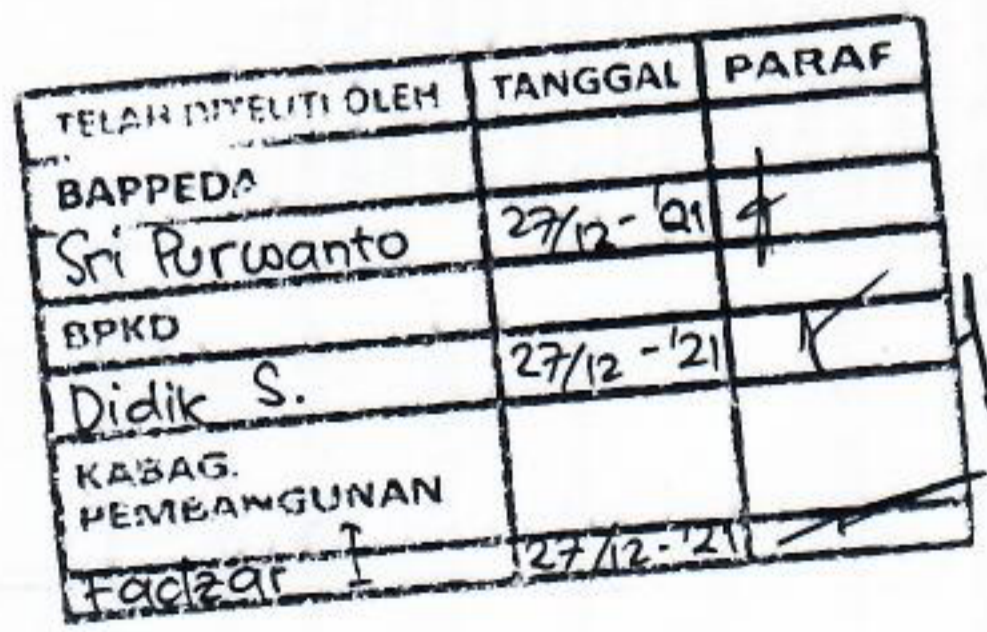 TELAH DITELITI OLEH TANGGAL PARAF
BAPPEDA
Sri Purwanto 27/12-'21
BPKD
Didik S. 27/12-'21
KABAG.
PEMBANGUNAN
Fadzar I 27/12-'21